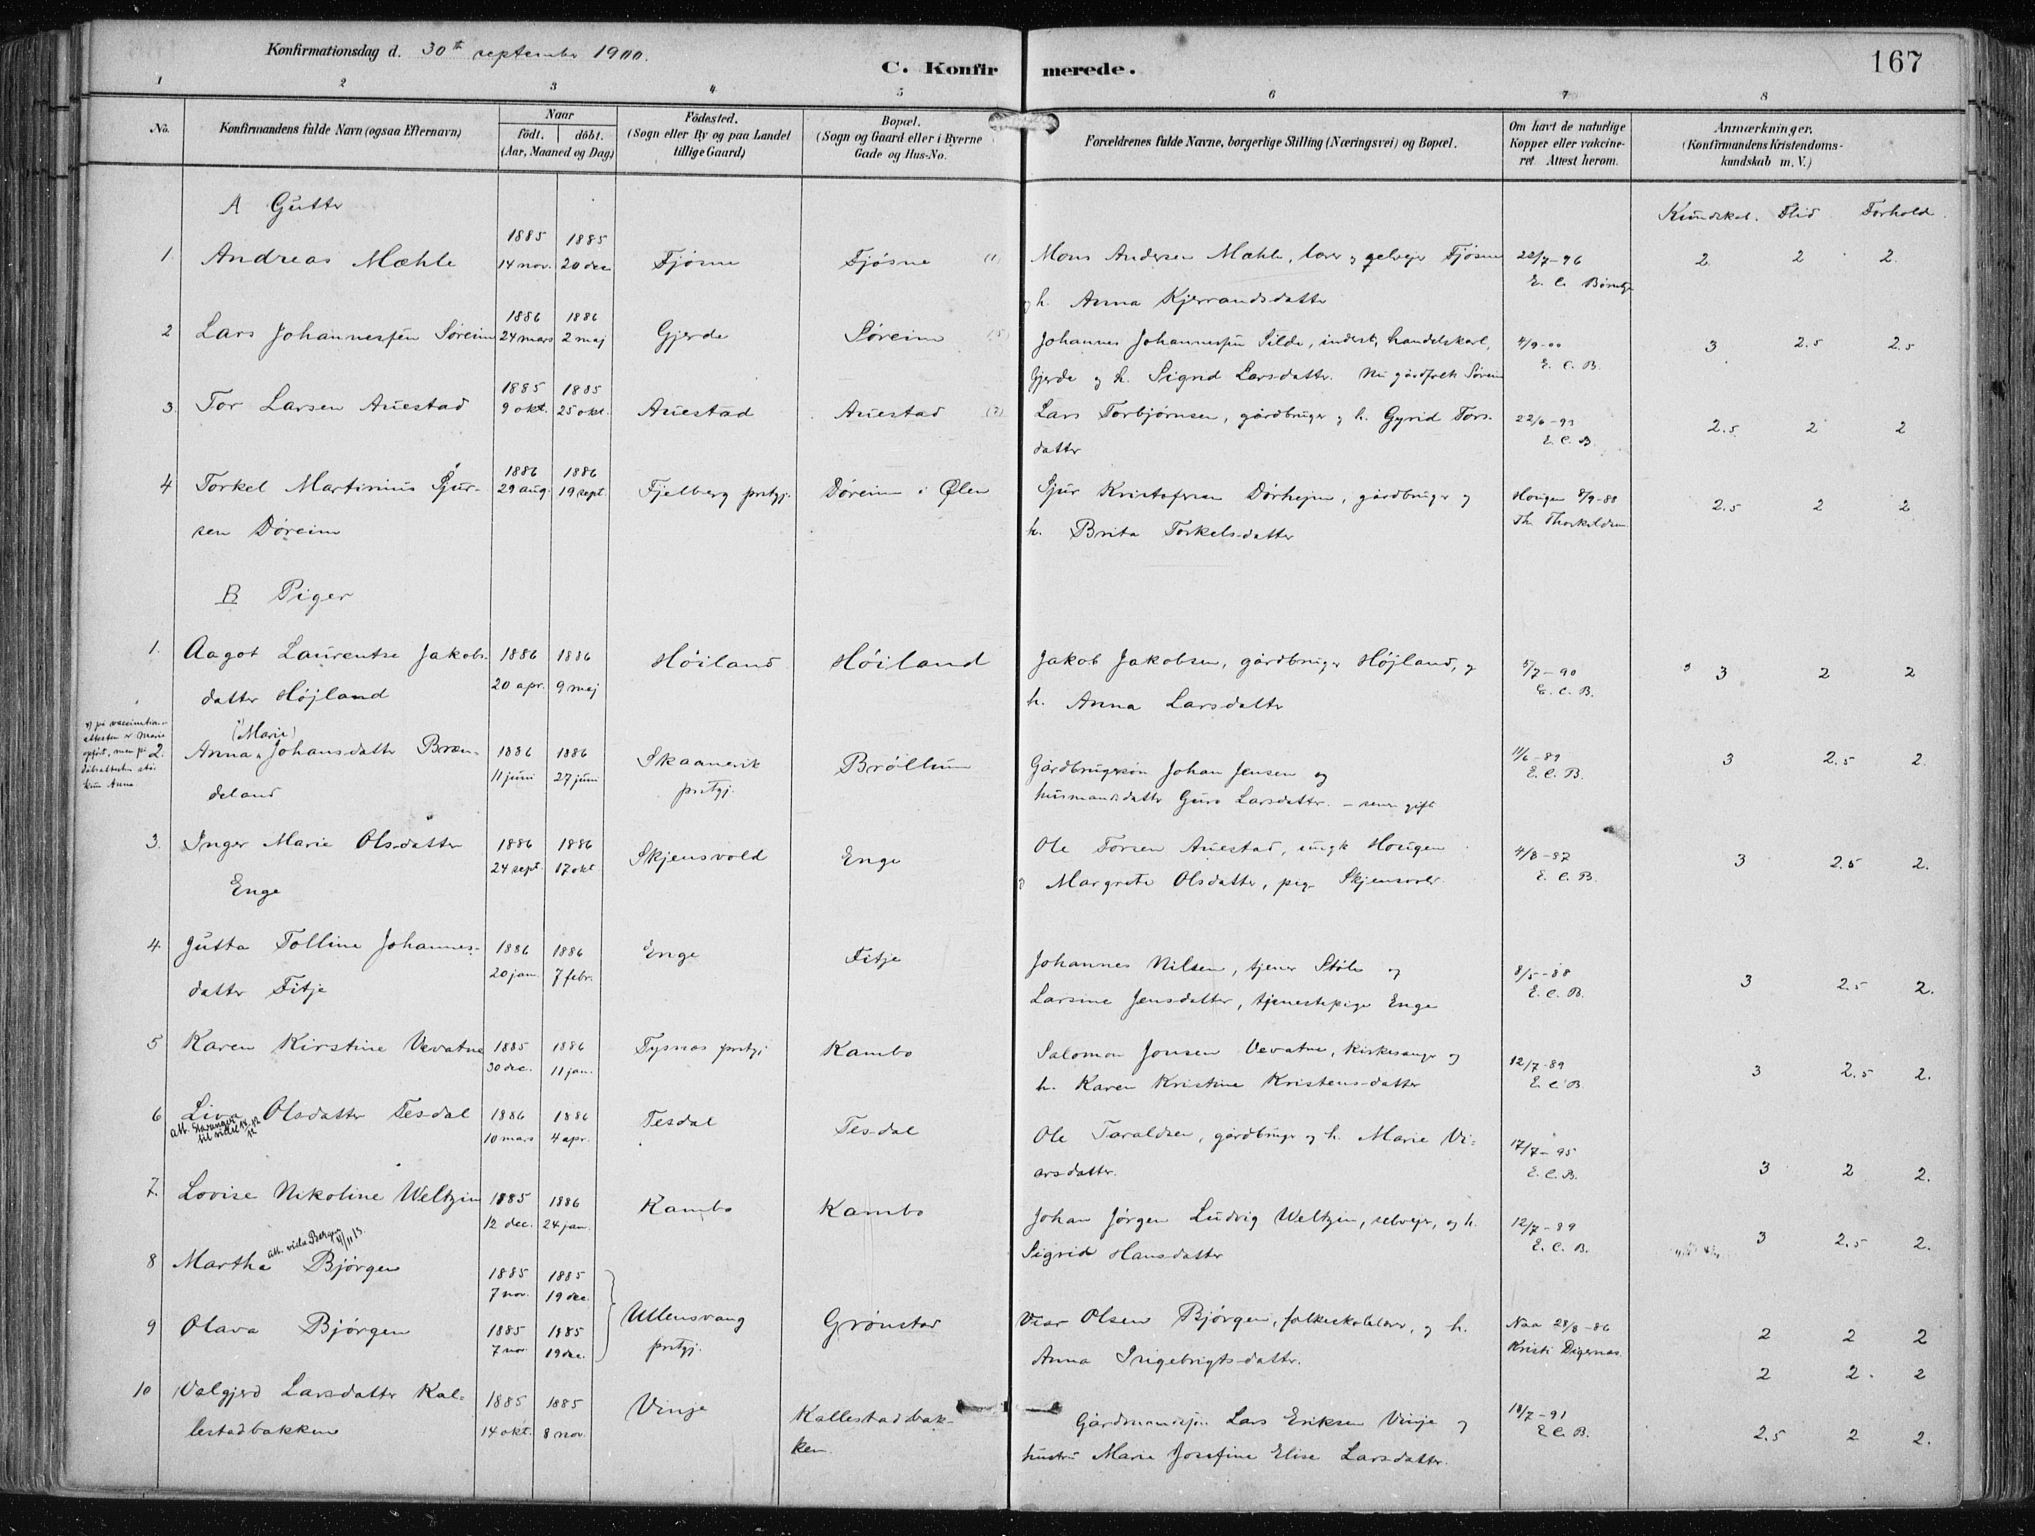 Konfirmationsdag d. 30th september 1900.
C. Konfirmerede.
167
1 2 3 4 5 6 7 8
No.
Konfirmandens fulde Navn (ogsaa Efternavn)
Naar
födt. döbt.
(Aar, Maaned og Dag)
Födested.
(Sogn eller By og paa Landet
tillige Gaard)
Bopæl.
(Sogn og Gaard eller i Byerne
Gade og Hus-No.
Forældrenes fulde Navne, borgerlige Stilling (Næringsvei) og Bopæl.
Om havt de naturlige
Kopper eller vakcine-
ret. Attest herom.
Anmærkninger.
(Konfirmandens Kristendoms-
kundskab m. V.)
A Gutter
Kundskab. Flid Forhold.
1885 1885
1. Andreas Mæhle 14 nov. 20 dec Fjøsne Fjøsne (1) Mons Andersen Mæhle, lærer g selvejer Fjøsne 22/7-96 2 2 2.
g h. Anna Kjerrandsdatter E. C.
1886 1886
2 Lars Johannessen Søreim 24 mars 2 maj Gjerde Søreim Johannes Johannessen Silde, inderst, handelskarl, 4/9-00 3 2.5 2.5
Gjerde g h. Sigrid Larsdatter. Nu gårdfolk Søreim E. C. B.
1885 1885
3. Tor Larsen Auestad 9 okt. 25 okt. Auestad Auestad Lars Torbjørnsen, gårdbruger g h. Gyrid Tors- 2.5 2 2
datter E. C. B.
1886 1886
4 Torkel Martinius Sjur- 29 aug. 19 sept. Fjelberg prstgj. Døreim i Ølen Sjur Kristofersen Dørhejm, gårdbruger g Hougen 8/9-88 2.5 2 2
sen Døreim h. Brita Torkelsdatter Th. Thorkeldsen
B Piger
1. Aagot Laurentse Jakobs- 1886 1886 Höiland Höiland Jakob Jakobsen, gårdbruger Højland, g 5/7-90 3 2 2
datter Højland 20 apr. 9 maj h. Anna Larsdatter E. C. B.
på vaccinations-
attesten er Marie
opført, men på
dåbsattesten står
kun Anna.
(Marie)
2. Anna Johansdatter Bræn- 1886 1886 Skaanevik Bröllum Gårdbrugersøn Johan Jensen og 11/6-89 3 2.5 2.
deland 11 juni 27 juni prstgj. husmandsdatter Guro Larsdatter. - senere gift E. C. B.
3. Inger Marie Olsdatter 1886 1886 Skjensvold Enge Ole Torsen Auestad, ungk Hougen 4/8-87 3 2.5 2.
Enge 24 sept. 17 okt Margrete Olsdatter, pige Skjensvold E. C. B.
4. Jutta Tolline Johannes- 1886 1886 Enge Fitje Johannes Nilsen, tjener Støle og 8/5-88 3 2.5 2.
datter Fitje 20 jan. 7 febr. Larsine Jensdatter, tjenestepige Enge E. C. B.
5 Karen Kirstine Vevatne 1885 1886 Tysnæs prstgj Kambo Salomon Jonsen Vevatne, kirkesanger og 12/7-89 3 2.5 2.
30 dec. 11 jan. h. Karen Kristine Kristensdatter E. C. B.
6 Liva Olsdatter Tesdal 1886 1886 Tesdal Tesdal Ole Taraldsen, gårdbruger og h. Marie Vi- 17/7-95 3 2 2.
att. Stavanger 10 mars 4 apr. arsdatter. E. C. B.
7. Lovise Nikoline Weltzin 1885 1886 Kambo Kambo Johan Jørgen Ludvig Weltzin, selvejer, og h. 12/7-89 3 2.5 2.
12 dec. 24 jan. Sigrid Hansdatter E. C. B.
att. vide Bergen 4/11 13.
8 Martha Bjørgen 1885 1885
7 nov. 19 dec. Ullensvang Grönstad Viar Olsen Bjørgen, folkeskolelærer, og h. Naa 28/8-86 2 2 2
9 Olava Bjørgen 1885 1885 prstgj. Anna Ingebrigtsdatter. Kristi Digernæs.
7 nov 19 dec. 2 2. 2
10 Valgjerd Larsdatter Kal- 1885 1885 Vinje Kallestadbak- Gårdmandssøn Lars Eriksen Vinje g 18/7-91 2.5 2 2.
lestadbakken 14 okt. 8 nov. ken. hustru Marie Josefine Elise Larsdatter. E. C. B.